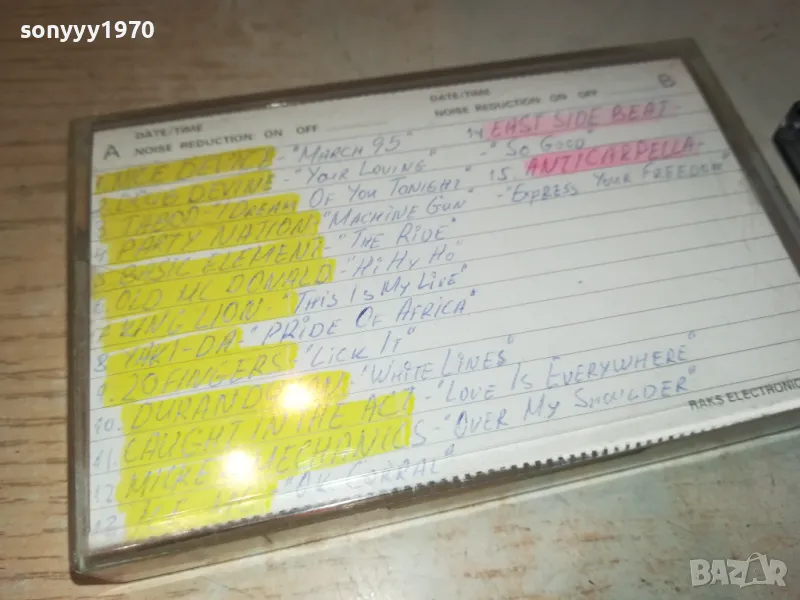 sonyyy1970
A DATE/TIME
NOISE REDUCTION: ON OFF
1. DEVICE - "MARCH 95"
2. DEVINE - "YOUR LOVING"
3. TABOO - I DREAM OF YOU TONIGHT"
4. PARTY NATION - "MACHINE GUN"
5 BASIC ELEMENT - "THE RIDE"
6 OLD MC DONALD - "HI HY HO"
7 KING LION - "THIS IS MY LIVE"
8. TAKI-DA - "PRIDE OF AFRICA"
9. 20 FINGERS - "LICK IT"
10. DURAN DURAN - "WHITE LINES"
11. CAUGHT IN THE ACT - "LOVE IS EVERYWHERE"
12 MIKE MECHANICS - "OVER MY SHOULDER"
13 "O.K. CORRAL"
DATE/TIME B
NOISE REDUCTION: ON OFF
14 EAST SIDE BEAT -
- "SO GOOD"
15. ANTICAPPELLA -
- "EXPRESS YOUR FREEDOM"
RAKS ELECTRONIC
BAZAR